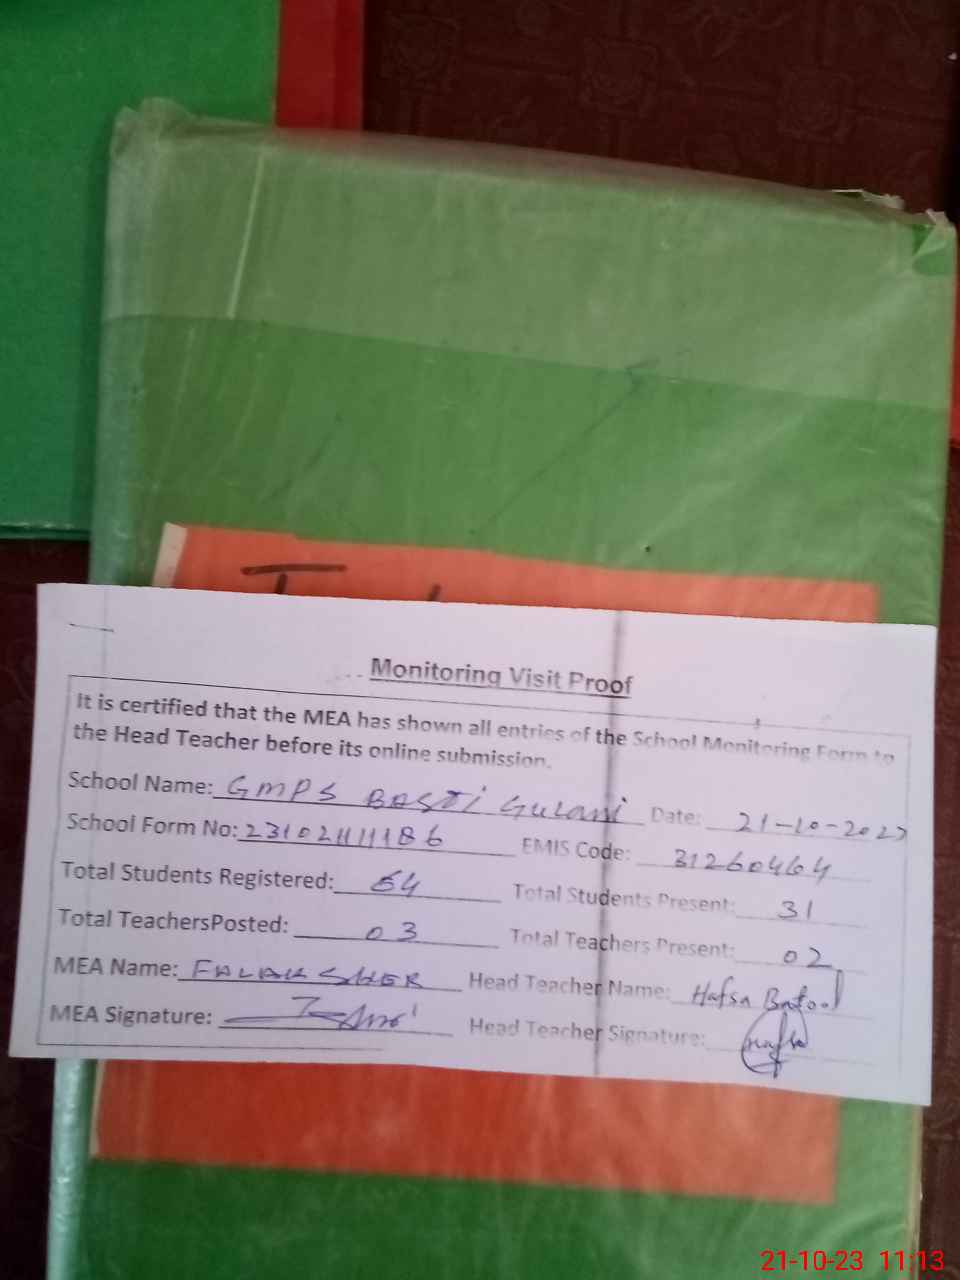 Monitoring Visit Proof
It is certified that the MEA has shown all entries of the School Monitoring Form to
the Head Teacher before its online submission.
School Name: GMPS BASTI Gulani Date: 21-10-2023
School Form No: 23102111186 EMIS Code: 31260464
Total Students Registered: 54 Total Students Present: 31
Total TeachersPosted: 03 Total Teachers Present: 02
MEA Name: FALAK SHER Head Teacher Name: Hafsa Batool
MEA Signature: Head Teacher Signature: Hafsa
21-10-23 11:13